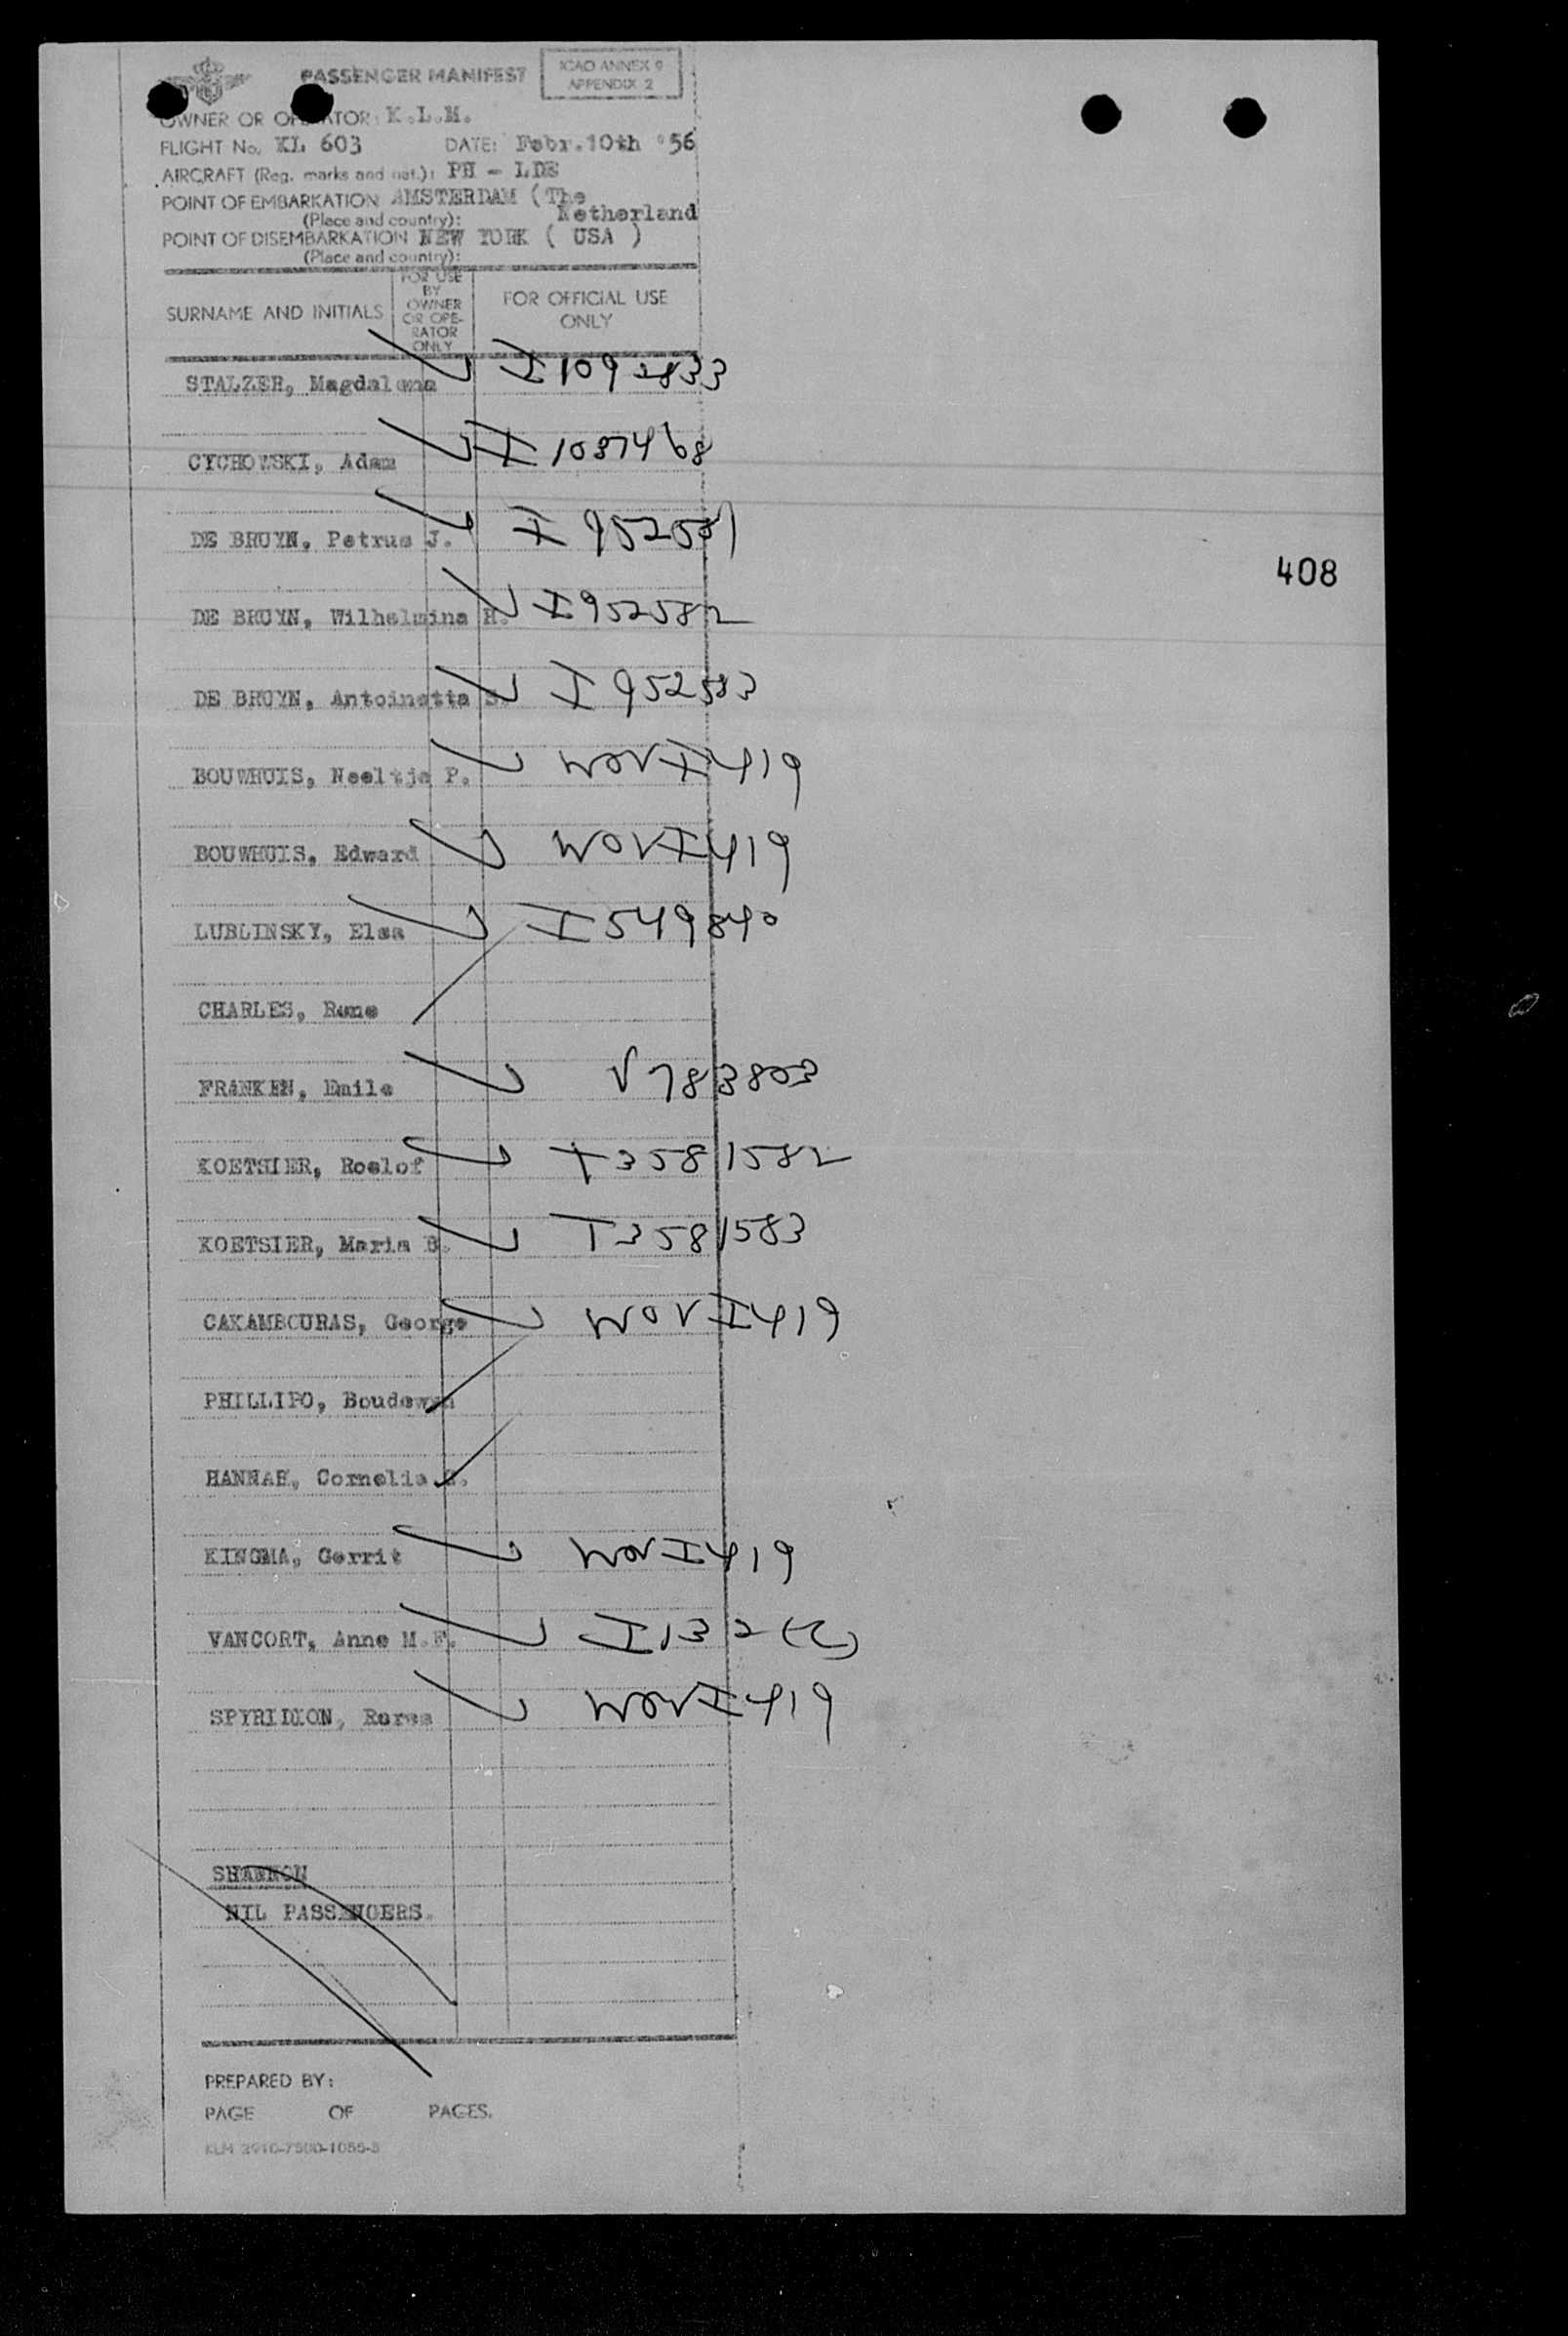 PASSENGER MANIFEST
ICAO ANNEX 9
APPENDIX 2
OWNER OR OPERATOR: K.L.M.
FLIGHT No. KL 603 DATE: Febr.10th '56
AIRCRAFT (Reg. marks and nat.): PH - LDE
POINT OF EMBARKATION AMSTERDAM ( The
(Place and country): Netherland
POINT OF DISEMBARKATION NEW YORK ( USA )
(Place and country):
SURNAME AND INITIALS
FOR USE
BY
OWNER
OR OPE-
RATOR
ONLY
FOR OFFICIAL USE
ONLY
STALZER, Magdalena I 1092833
CYCHOWSKI, Adam I 1087468
DE BRUYN, Petrus J. I 952581
408
DE BRUYN, Wilhelmina H. I 952582
DE BRUYN, Antoinetta I 952583
BOUWHUIS, Neeltje P. WOVI 419
BOUWHUIS, Edward WOVI 419
LUBLINSKY, Elsa I 549840
CHARLES, Rene
FRANKEN, Emile V783803
KOETSIER, Roelof T3581582
KOETSIER, Maria B. T3581583
CAKAMBOURAS, George WOVI 419
PHILLIPO, Boudewyn
HANNAH, Cornelia
KINGMA, Gerrit WOVI 419
VANCORT, Anne M.F. I 132 (C)
SPYRIDION, WOVI 419
SHANNON
NIL PASSENGERS.
PREPARED BY:
PAGE OF PAGES.